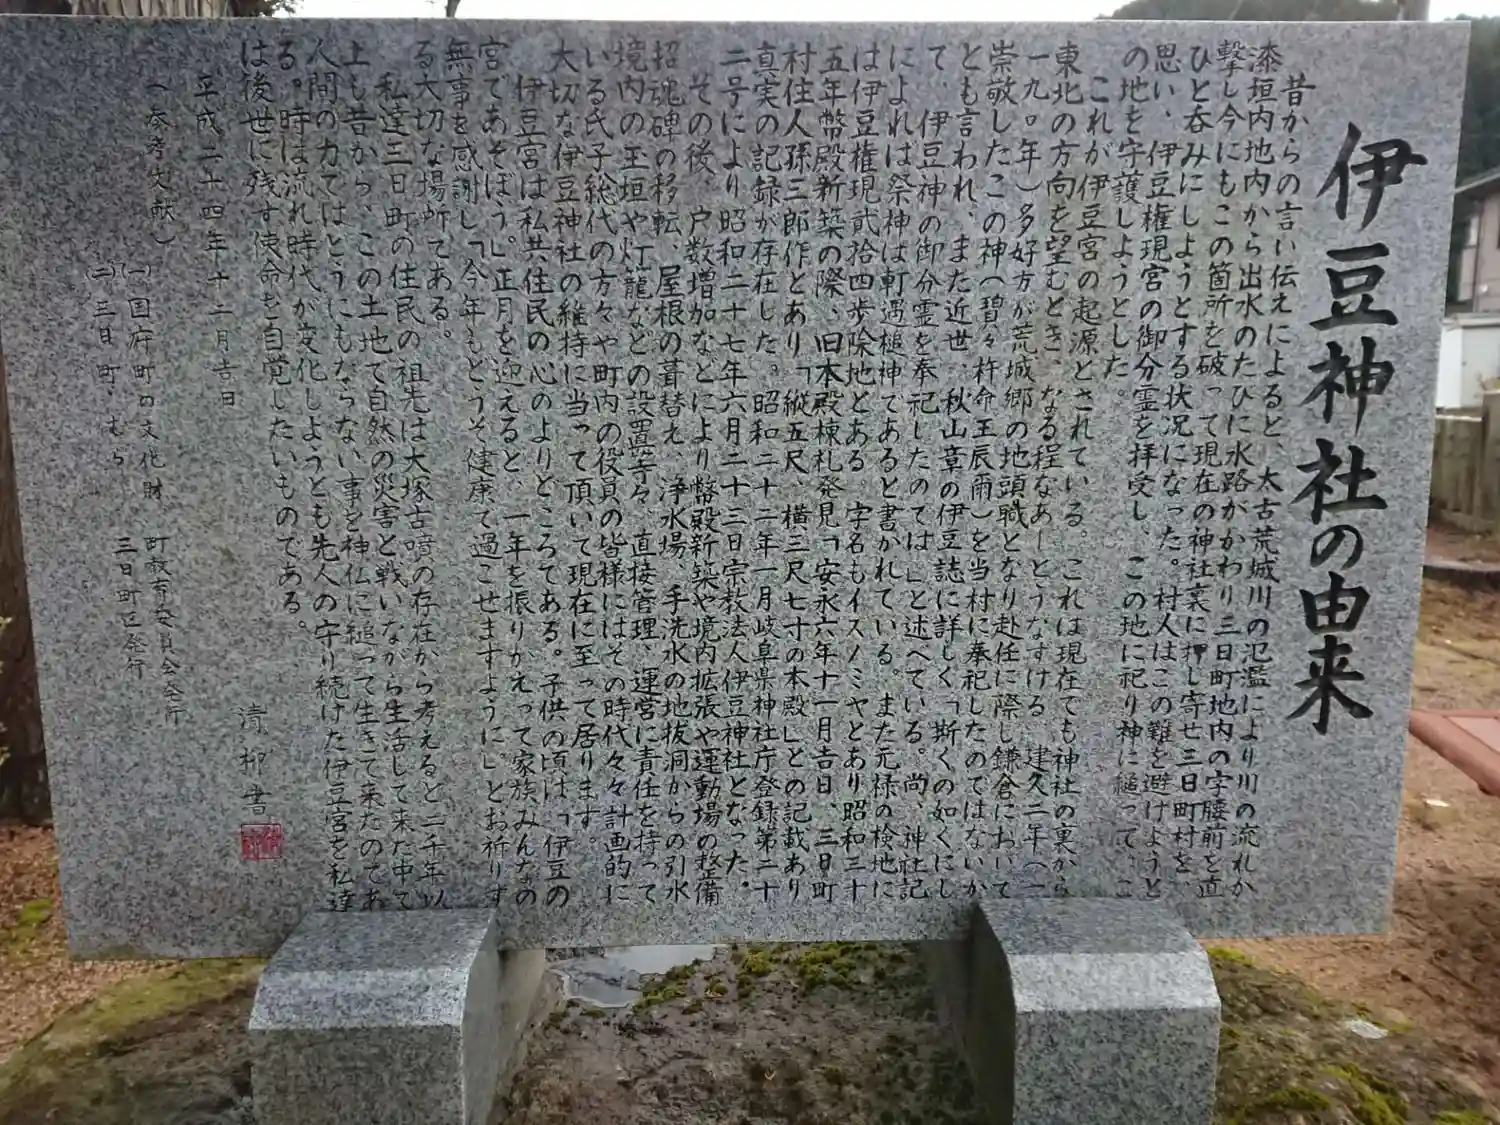 伊豆神社の由来
昔からの言い伝えによると、太古荒城川の氾濫により川の流れか
漆垣内地内から出水のたびに水路がかわり三日町地内の字腰前を直
撃し今にもこの箇所を破って現在の神社裏に押し寄せ三日町村を、
ひと呑みにしようとする状況になった。村人はこの難を避けようと
思い、伊豆権現宮の御分霊を拝受し、この地に祀り神に縋って、こ
の地を守護しようとした。
これが伊豆宮の起源とされている。これは現在でも神社の裏から
東北の方向を望むとき、なる程なあーとうなずける。建久二年(一
一九〇年)多好方が荒城郷の地頭職となり赴任に際し鎌倉において
崇敬したこの神(碧々杵命王辰爾)を当村に奉祀したのではないか
とも言われ、また近世、秋山章の伊豆誌に詳しく「斯くの如くにし
て、伊豆神の御分霊を奉祀したのでは」と述べている。尚、神社記
によれば祭神は軻遇槌神であると書かれている。また元禄の検地に
は伊豆権現弐拾四歩除地とある。字名もイスノミヤとあり昭和三十
五年幣殿新築の際、旧本殿棟札発見「安永六年十一月吉日、三日町
村住人孫三郎作とあり「縦五尺、横三尺七寸の本殿」との記載あり
真実の記録が存在した。昭和二十二年一月岐阜県神社庁登録第二十
二号により昭和二十七年六月二十三日宗教法人伊豆神社となった。
その後、戸数増加などにより幣殿新築や境内拡張や運動場の整備
招魂碑の移転、屋根の葺替え、浄水場、手洗水の地抜洞からの引水
境内の玉垣や灯籠などの設置等々、直接管理、運営に責任を持って
いる氏子総代の方々や町内の役員の皆様にはその時代々々計画的に
大切な伊豆神社の維持に当って頂いて現在に至って居ります。
伊豆宮は私共住民の心のよりどころである。子供の頃は「伊豆の
宮であそぼう。」正月を迎えると、一年を振りかえって家族みんなの
無事を感謝し「今年もどうぞ健康で過ごせますように」とお祈りす
る大切な場所である。
私達三日町の住民の祖先は大塚古噴の存在から考えると二千年以
上も昔から、この土地で自然の災害と戦いながら生活して来た中で
人間の力ではどうにもならない事を神仏に縋って生きて来たのであ
る。時は流れ時代が変化しようとも先人の守り続けた伊豆宮を私達
は後世に残す使命を自覚したいものである。
平成二十四年十二月吉日
清柳書
(参考文献)
(一)国府町の文化財 町教育委員会発行
(二)三日町・むら 三日町区発行